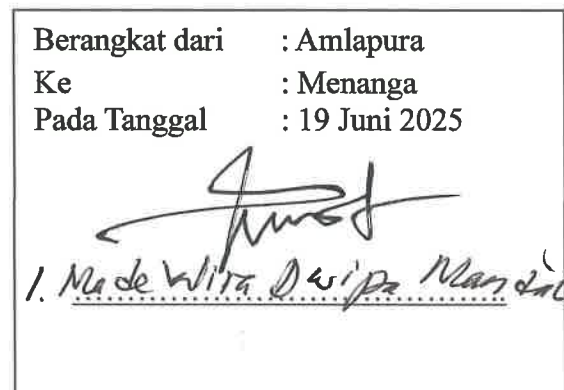 Berangkat dari : Amlapura
Ke : Menanga
Pada Tanggal : 19 Juni 2025
1. Made Wira